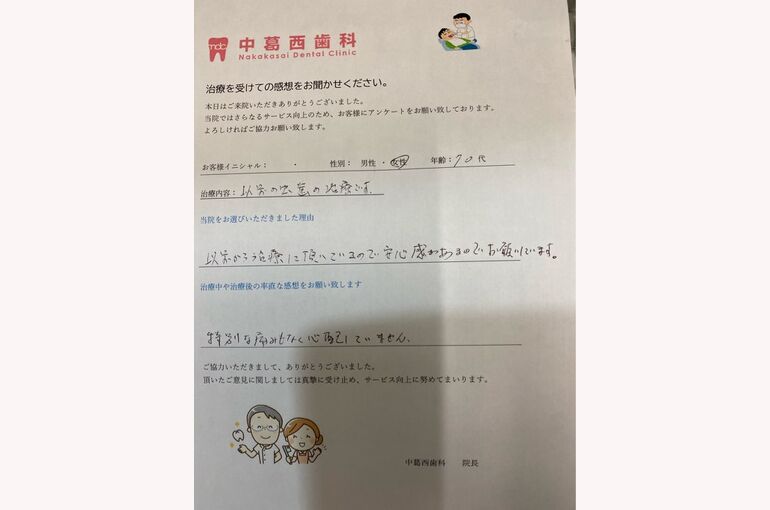 mdc
中葛西歯科
Nakakasai Dental Clinic
治療を受けての感想をお聞かせください。
本日はご来院いただきありがとうございました。
当院ではさらなるサービス向上のため、お客様にアンケートをお願い致しております。
よろしければご協力お願い致します。
お客様イニシャル： ・ 性別： 男性 ・ 女性 年齢：70代
治療内容：以前の虫歯の治療です。
当院をお選びいただきました理由
以前から治療に頂いているので安心感があるのでお願いしています。
治療中や治療後の率直な感想をお願い致します
特別な痛みもなく心配していません。
ご協力いただきまして、ありがとうございました。
頂いたご意見に関しましては真摯に受け止め、サービス向上に努めてまいります。
中葛西歯科 院長